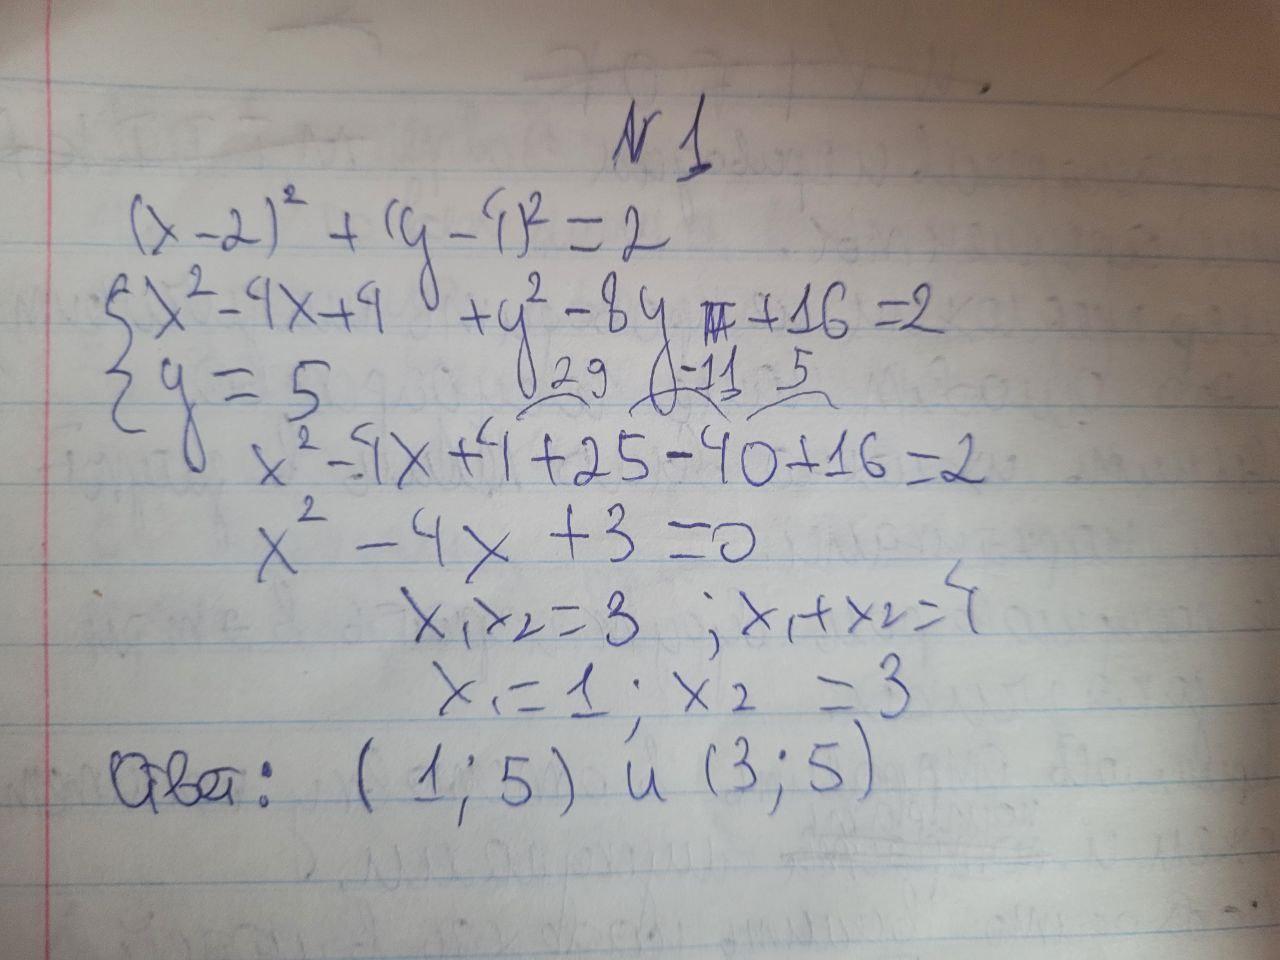 N 1
(x-2)² + (y-4)² = 2
{ x² - 4x + 4 + y² - 8y + 16 = 2
y = 5
29 -11 5
x² - 4x + 4 + 25 - 40 + 16 = 2
x² - 4x + 3 = 0
x₁x₂ = 3 ; x₁ + x₂ = 4
x₁ = 1 ; x₂ = 3
Ответ: (1; 5) и (3; 5)